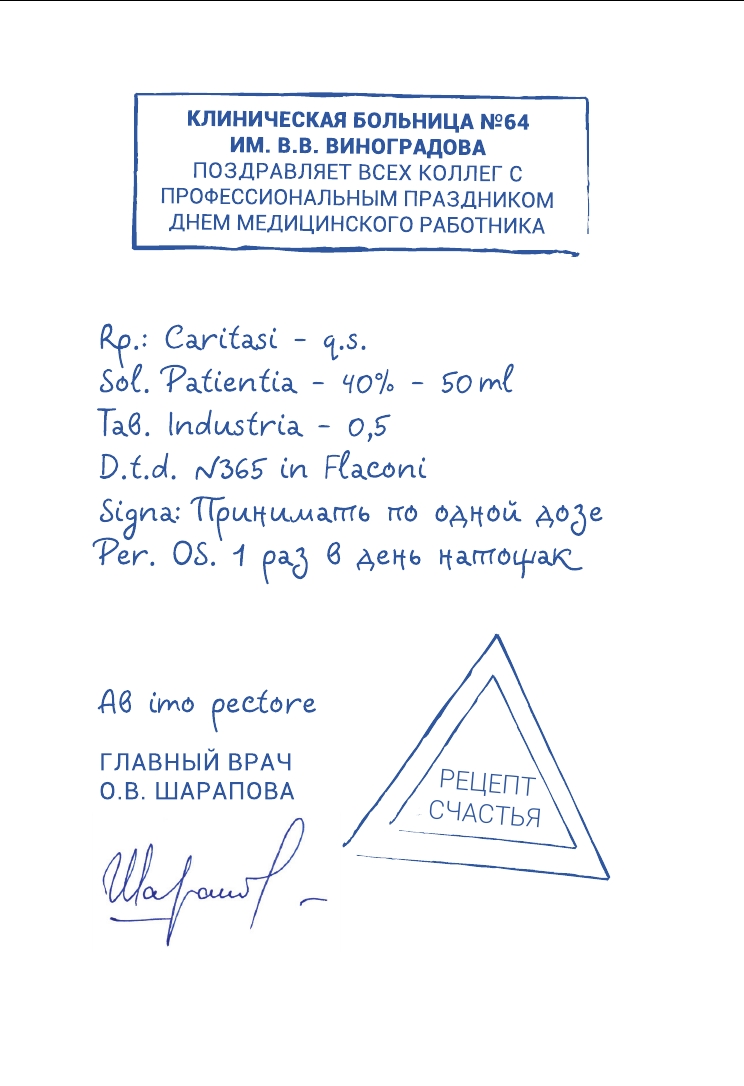 КЛИНИЧЕСКАЯ БОЛЬНИЦА №64
ИМ. В.В. ВИНОГРАДОВА
ПОЗДРАВЛЯЕТ ВСЕХ КОЛЛЕГ С
ПРОФЕССИОНАЛЬНЫМ ПРАЗДНИКОМ
ДНЕМ МЕДИЦИНСКОГО РАБОТНИКА
Rp.: Caritasi - q.s.
Sol. Patientia - 40% - 50 ml
Tab. Industria - 0,5
D.t.d. N365 in Flaconi
Signa: Принимать по одной дозе
Per. OS. 1 раз в день натощак
Ab imo pectore
ГЛАВНЫЙ ВРАЧ
О.В. ШАРАПОВА
РЕЦЕПТ
СЧАСТЬЯ
Шарапов